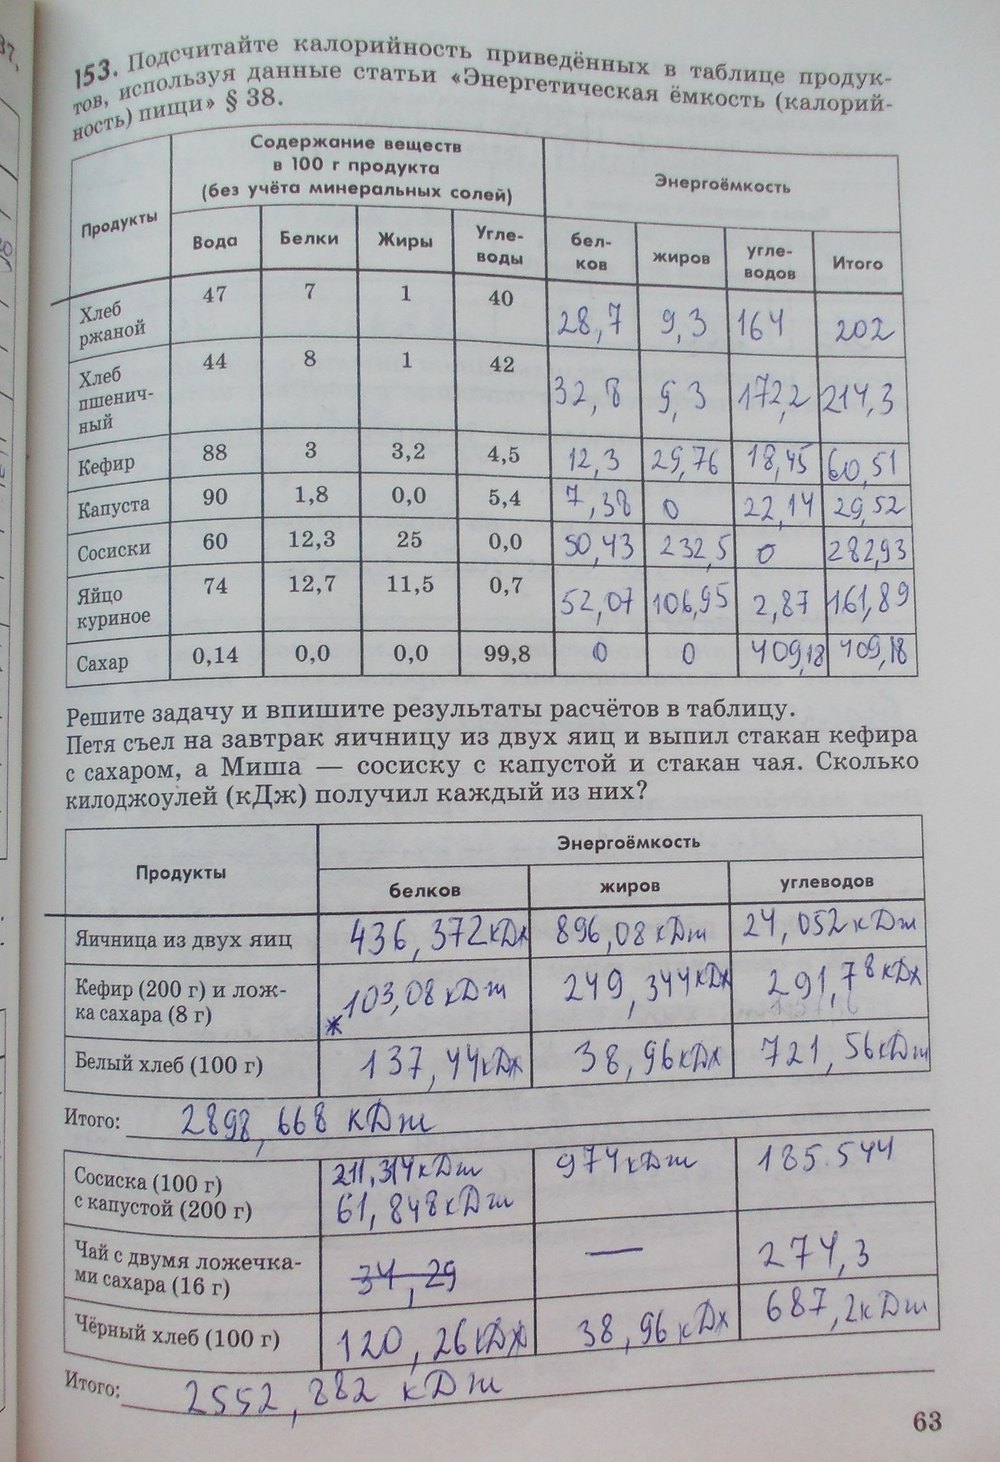 153. Подсчитайте калорийность приведённых в таблице продук-
тов, используя данные статьи «Энергетическая ёмкость (калорий-
ность) пищи» § 38.
Продукты
Содержание веществ
в 100 г продукта
(без учёта минеральных солей)
Энергоёмкость
Вода Белки Жиры Угле-
воды
бел-
ков
жиров угле-
водов
Итого
Хлеб
ржаной
47 7 1 40 28,7 9,3 164 202
Хлеб
пшенич-
ный
44 8 1 42 32,8 9,3 172,2 214,3
Кефир 88 3 3,2 4,5 12,3 29,76 18,45 60,51
Капуста 90 1,8 0,0 5,4 7,38 0 22,14 29,52
Сосиски 60 12,3 25 0,0 50,43 232,5 0 282,93
Яйцо
куриное
74 12,7 11,5 0,7 52,07 106,95 2,87 161,89
Сахар 0,14 0,0 0,0 99,8 0 0 409,18 409,18
Решите задачу и впишите результаты расчётов в таблицу.
Петя съел на завтрак яичницу из двух яиц и выпил стакан кефира
с сахаром, а Миша — сосиску с капустой и стакан чая. Сколько
килоджоулей (кДж) получил каждый из них?
Продукты
Энергоёмкость
белков жиров углеводов
Яичница из двух яиц 436,372кДж 896,08 кДж 24,052кДж
Кефир (200 г) и лож-
ка сахара (8 г)
103,08 кДж 249,344кДж 291,78кДж
Белый хлеб (100 г) 137,44кДж 38,96кДж 721,56кДж
Итого: 2898,668 кДж
Сосиска (100 г)
с капустой (200 г)
211,314кДж
61,848кДж
974кДж 185.544
Чай с двумя ложечка-
ми сахара (16 г)
34,29 — 274,3
Чёрный хлеб (100 г) 120,26кДж 38,96 кДж 687,2кДж
Итого: 2552,882 кДж
63